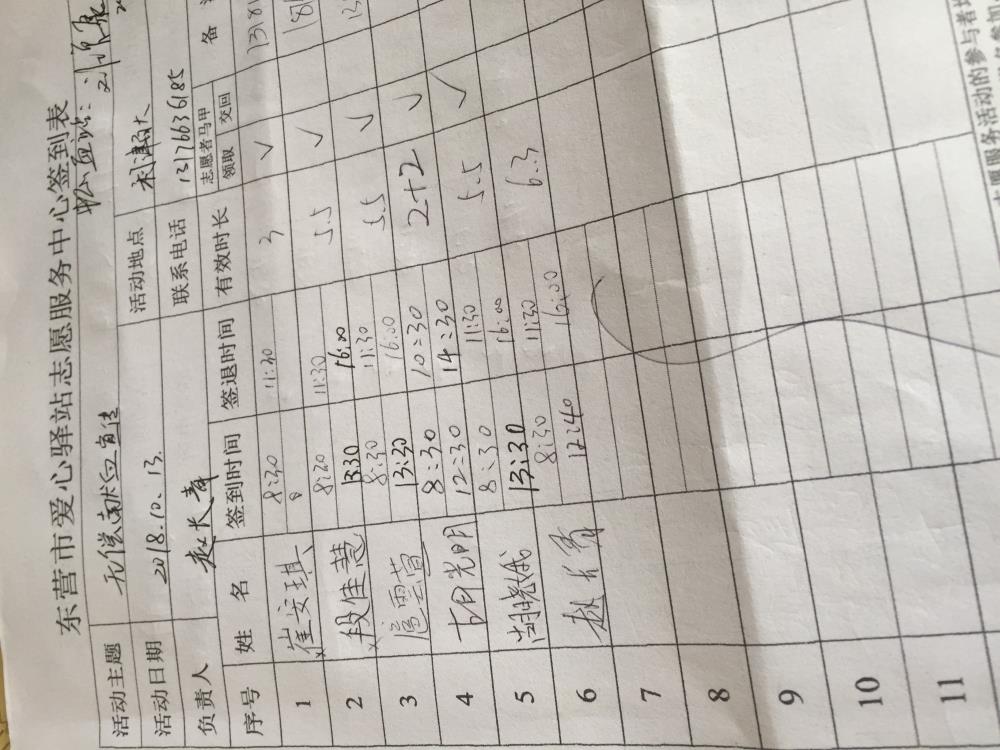 东营市爱心驿站志愿服务中心签到表
活动主题 无偿献血宣传
活动日期 2018.10.13. 活动地点
负责人 赵长青 联系电话 13176636185
序号 姓 名 签到时间 签退时间 有效时长 志愿者马甲 领取 交回 备
1 崔安琪 8:30 11:30 3 √ 1381
8
2 段佳慧 8:30 11:30 5.5 √
13:30 16:00
3 8:30 11:30 5.5 √
13:30 16:00
4 胡光明 8:30 10:30 2+2 √
12:30 14:30
5 胡晓娥 8:30 11:30 5.5 √
13:30 16:00
6 赵长青 8:30 11:30 6.3
12:40 16:00
7
8
9
10
11
愿服务活动的参与者